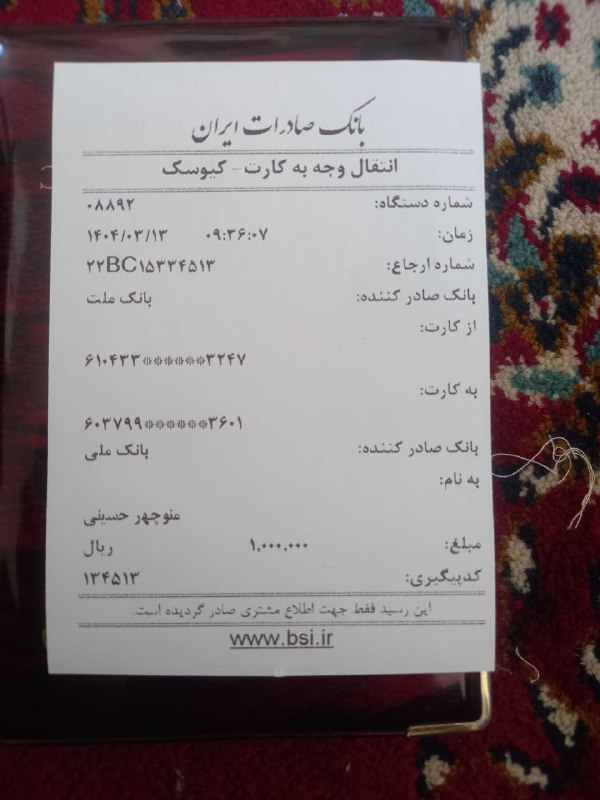 بانک صادرات ایران
انتقال وجه به کارت - کیوسک
شماره دستگاه: ۰۸۸۹۲
زمان: ۰۹:۳۶:۰۷ ۱۴۰۴/۰۳/۱۳
شماره ارجاع: ۲۲BC۱۵۳۳۴۵۱۳
بانک صادر کننده: بانک ملت
از کارت:
۶۱۰۴۳۳******۳۲۴۷
به کارت:
۶۰۳۷۹۹******۳۶۰۱
بانک صادر کننده: بانک ملی
به نام:
منوچهر حسینی
مبلغ: ۱,۰۰۰,۰۰۰ ریال
کدپیگیری: ۱۳۴۵۱۳
این رسید فقط جهت اطلاع مشتری صادر گردیده است.
www.bsi.ir